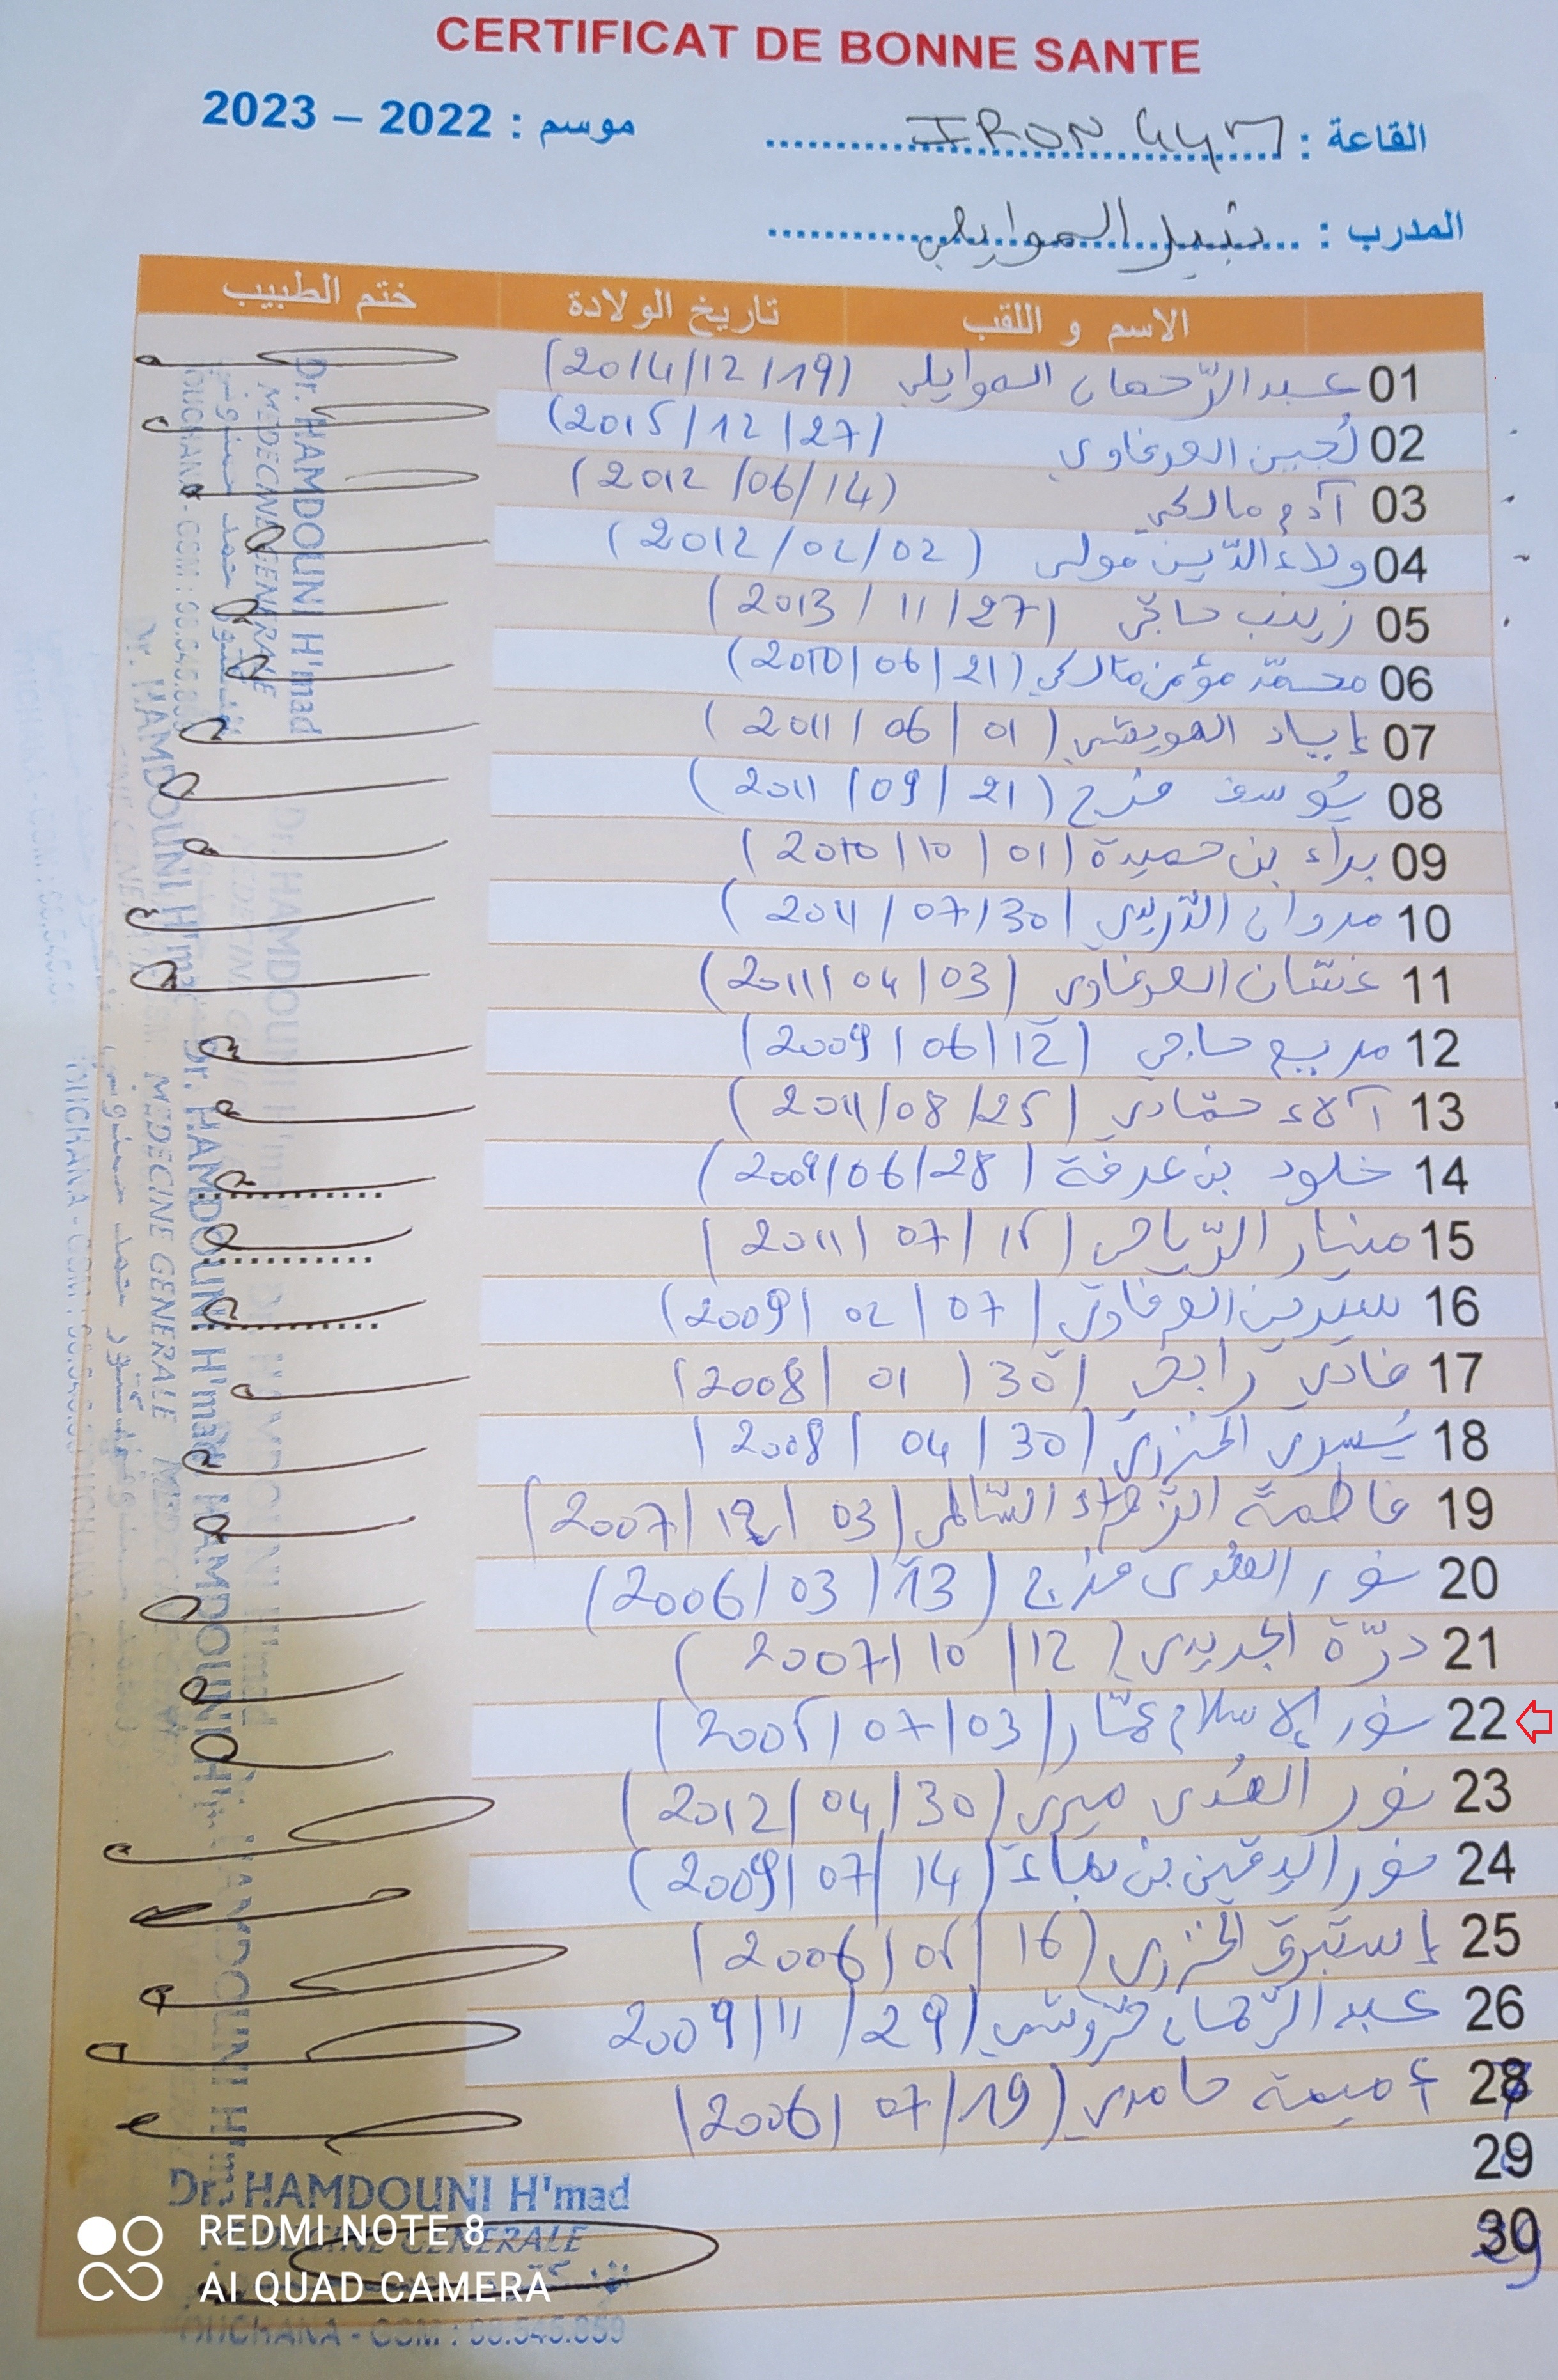 CERTIFICAT DE BONNE SANTE
القاعة : IRON GYM
موسم : 2022 – 2023
المدرب : نبيل الموايلي
الاسم و اللقب تاريخ الولادة ختم الطبيب
01 عبد الرّحمان الموايلي (2014/12/19)
02 لُجين العرفاوي (2015/12/27)
03 آدم مالكي (2012/06/14)
04 ولاء الدّين مولى (2012/02/02)
05 زينب حاجّي (2013/11/27)
06 محمّد مؤمن مالكي (2010/06/21)
07 إياد العويشي (2011/06/01)
08 يُوسف فرج (2011/09/21)
09 براء بن حميدة (2010/10/01)
10 مروان الدّريدي (2011/07/30)
11 غسّان العرفاوي (2011/04/03)
12 مريم حاجي (2009/06/12)
13 آلاء حمّادي (2011/08/25)
14 خلود بن عرفة (2009/06/28)
15 منار الرّياحي (2011/07/15)
16 سيرين العرفاوي (2009/02/07)
17 فادي رابحي (2008/01/30)
18 يُسرى الخزري (2008/04/30)
19 فاطمة الزّهراء السّالمي (2007/12/03)
20 نور الهُدى فرج (2006/03/13)
21 درّة الجديدي (2007/10/12)
22 نور الإسلام عمّار (2005/07/03)
23 نور الهُدى ميري (2012/04/30)
24 نور اليقين بن (2009/07/14)
25 إستبرق الخزري (2006/05/16)
26 عبد الرّحمان (2009/11/29
28 أميمة حامدي (2006/07/19)
29
30
Dr. HAMDOUNI H'mad
MEDECINE GENERALE
Dr. HAMDOUNI H'mad
MEDECINE GENERALE
Dr. HAMDOUNI H'mad
MEDECINE GENERALE
REDMI NOTE 8
AI QUAD CAMERA